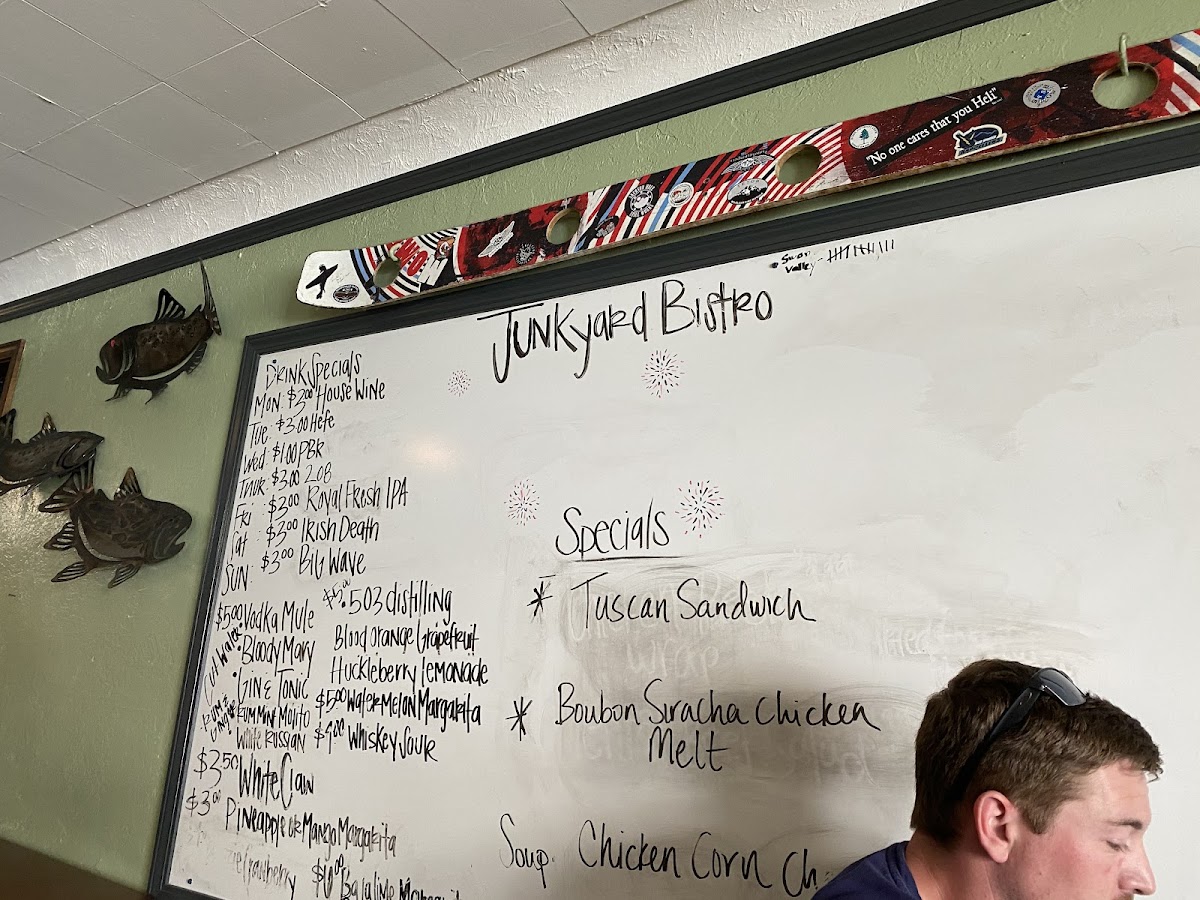 "No one cares that you Heli"
Swan
Valley
Junkyard Bistro
Drink Specials
Mon: $3.00 House Wine
Tue $3.00 Hefe
Wed $1.00 PBR
Thur $3.00 208
Fri : $3.00 Royal Fresh IPA
Sat : $3.00 Irish Death
Sun: $3.00 Big Wave
$5.00 Vodka Mule
Bloody Mary
Gin & Tonic
Rum Mint Mojito
White Russian
503 distilling
Blood orange Grapefruit
Huckleberry Lemonade
$5.00 Watermelon Margarita
$9.00 Whiskey Sour
$3.50 White Claw
$3.00 Pineapple or Mango Margarita
Cranberry
Specials
* Tuscan Sandwich
* Boubon Suracha Chicken
Melt
Soup: Chicken Corn Ch